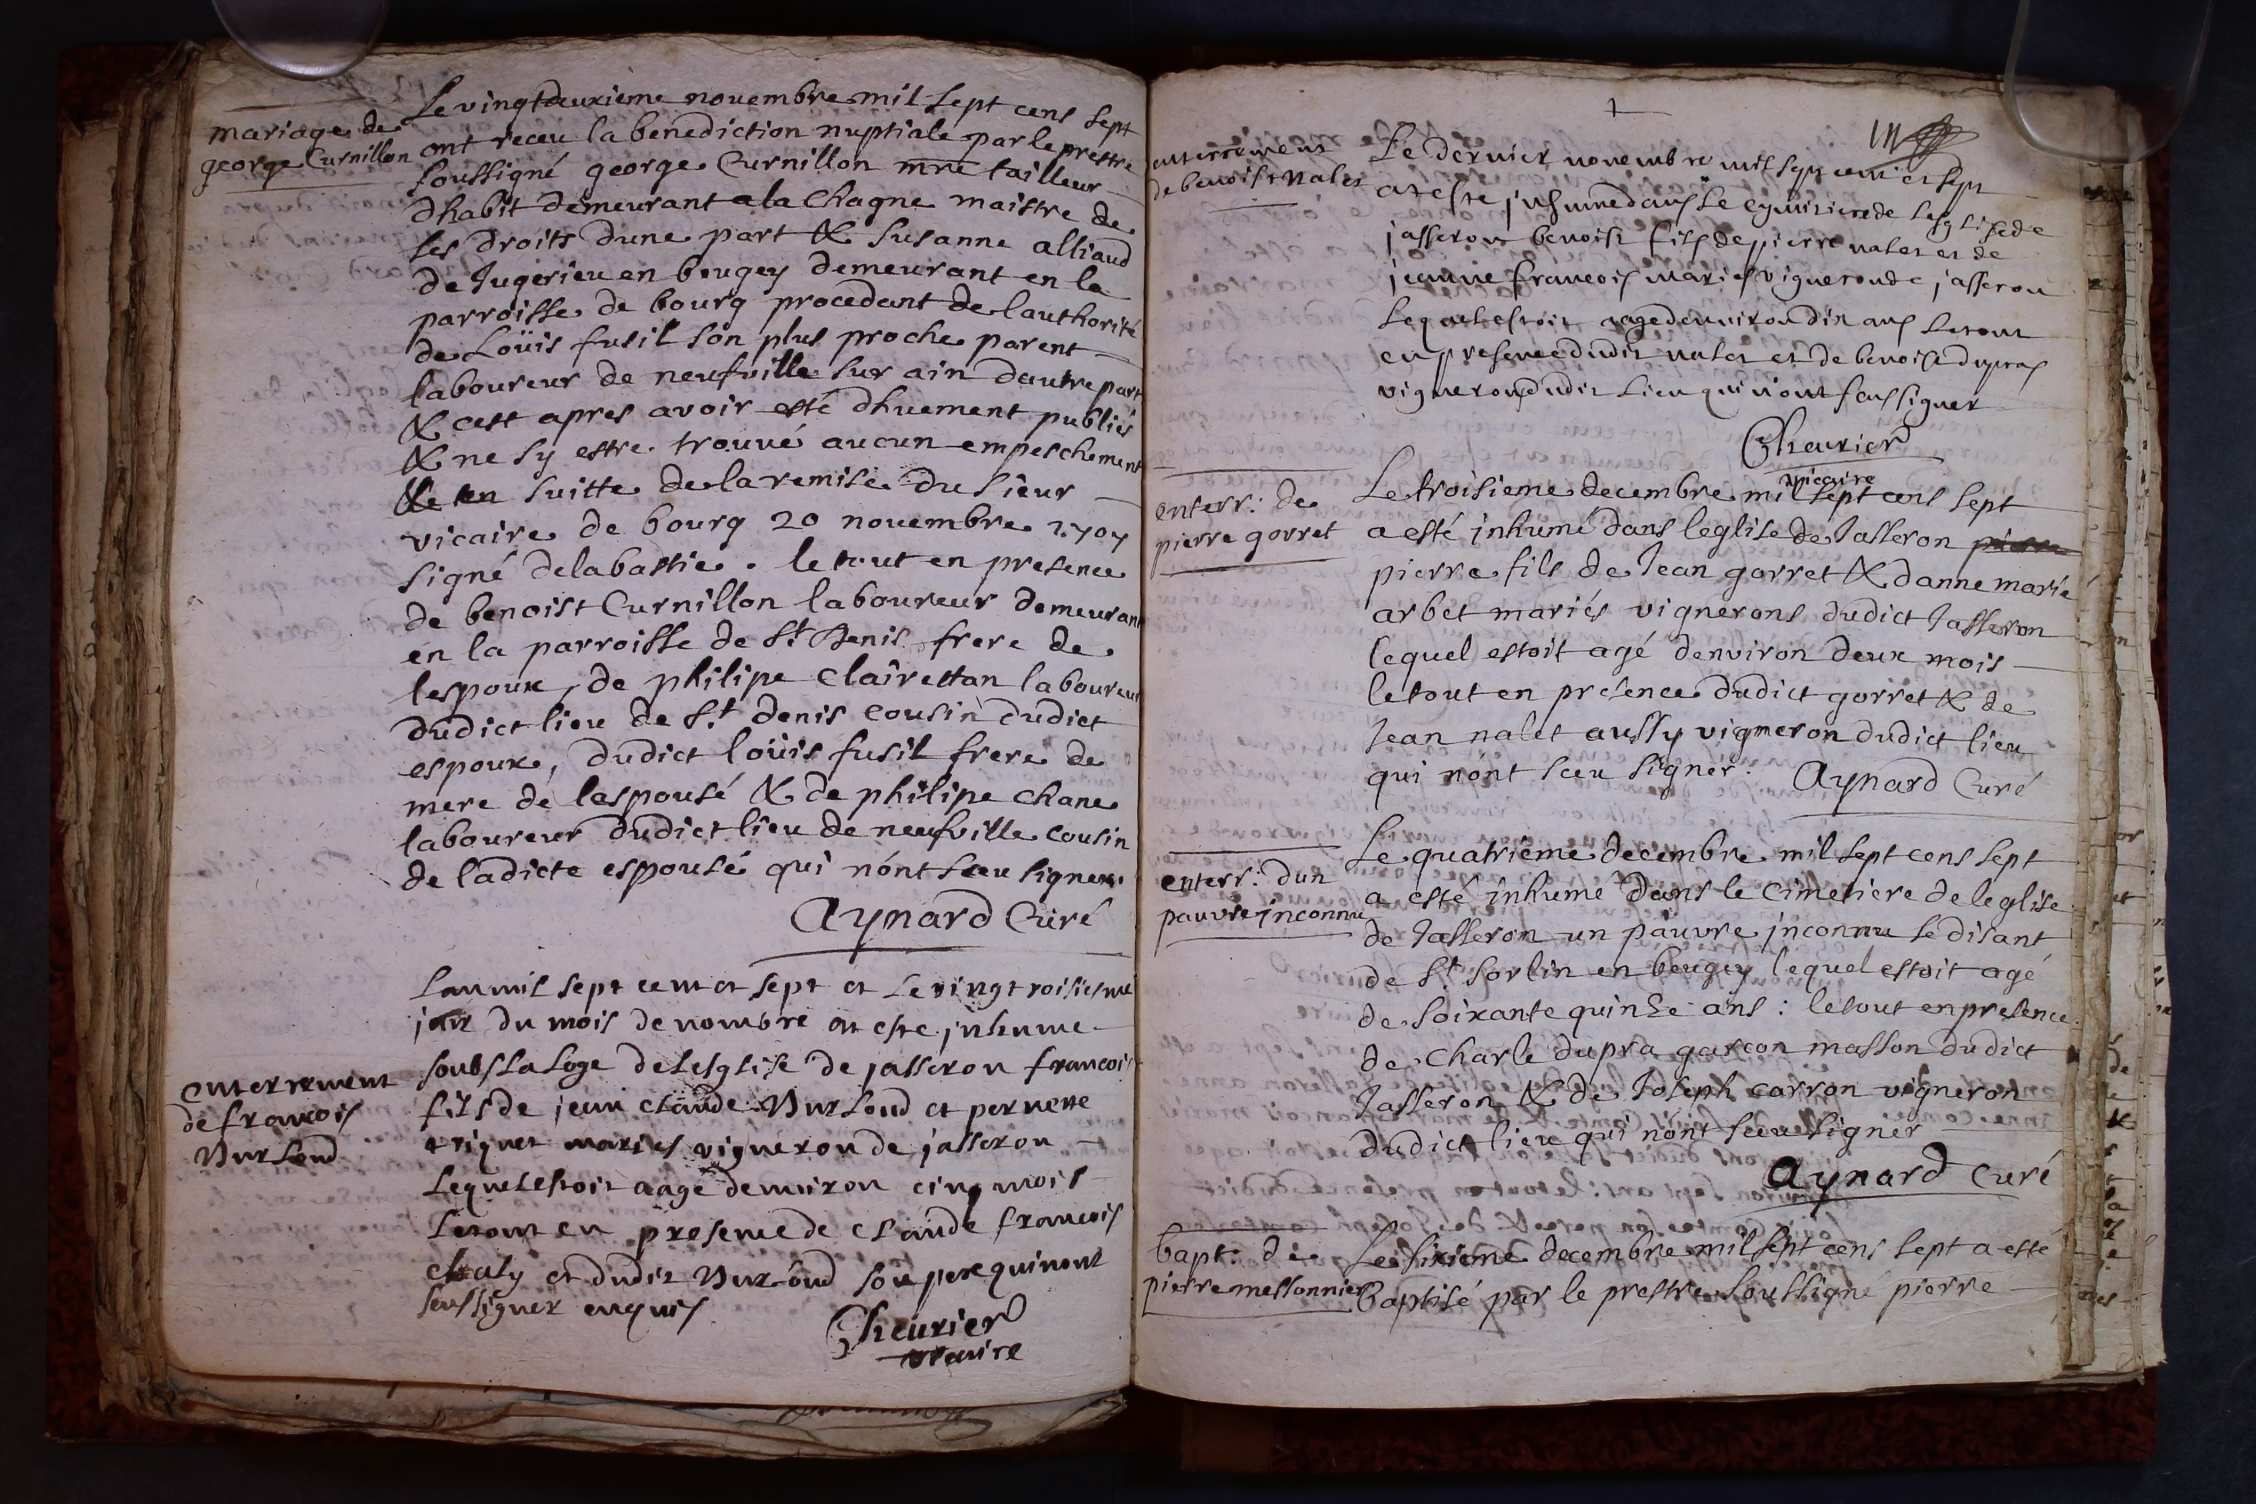 mariage de
george Curnillon
Le vingtdeuxieme novembre mil sept cens sept
ont receu la benediction nuptiale par le prestre
soussigné george Curnillon mre tailleur
dhabit demeurant a la Chagne maistre de
ses droits dune part & susanne alliaud
de Jugerieu en beugey demeurant en la
parroisse de bourg procedant de lauthorité
de Loüis fusil son plus proche parent
laboureur de neufville sur ain dautre part
& cest apres avoir esté dhuement publiés
& ne sy estre trouvé aucun empeschement
& en suitte de la remise du sieur
vicaire de bourg 20 novembre 1707
signé delabastie. le tout en presence
de benoist Curnillon laboureur demeurant
en la parroisse de St Denis frere de
lespoux, de philipe Clairettan laboureur
dudict lieu de St denis cousin dudict
espoux, dudict loüis fusil frere de
mere de lespousé & de philipe chane
laboureur dudict lieu de neufville cousin
de ladicte espousé qui nónt sceu signer.
Aynard Curé
enterrement
de francois
Lan mil sept cent et sept et le vingtroisiesme
jour du mois de nombre at este jnhume
soubs la loge de lesglise de jasseron francois
fils de jean claude et pernette
triquet maries vigneron de jasseron
lequel estoit aage denuiron cinq mois
letout en presence de claude francois
chaly et dudit son pere qui nont
seu signer enquis
Cheurier
vicaire
enterrement
de benoist nalet
Le dernier novembre mil sept cent et sept
at este jnhume dans le cymitiere de lesglise de
jasseron benoist fils de pierre nalet et de
jeanne francois maries vigneron de jasseron
lequel estoit aage denuiron dix ans letout
en presence dudit nalet et de benoist dupras
vigneron dudit lieu qui nont seu signer
Cheurier
vicaire
enterr: de
pierre gorret
Le troisieme decembre mil sept cens sept
a esté inhumé dans leglise de Jasseron pierre
pierre fils de Jean gorret & danne marie
arbet mariés vignerons dudict Jasseron
lequel estoit agé denviron deux mois
letout en presence dudict gorret & de
Jean nalet aussy vigneron dudict lieu
qui nónt sceu signer. Aynard Curé
enterr: dun
pauvre jnconnu
Le quatrieme decembre mil sept cens sept
a esté inhumé dans le cimetiere de leglise
de Jasseron un pauvre jnconnu se disant
de St Sorlin en beugey lequel estoit agé
de soixante quinze ans : letout en presence
de Charle dupra garcon masson dudict
Jasseron & de Joseph carron vigneron
dudict lieu qui nónt sceu signer
Aynard Curé
bapt: de
pierre messonnier
Le sixieme decembre mil sept cens sept a esté
baptisé par le prestre soussigne pierre